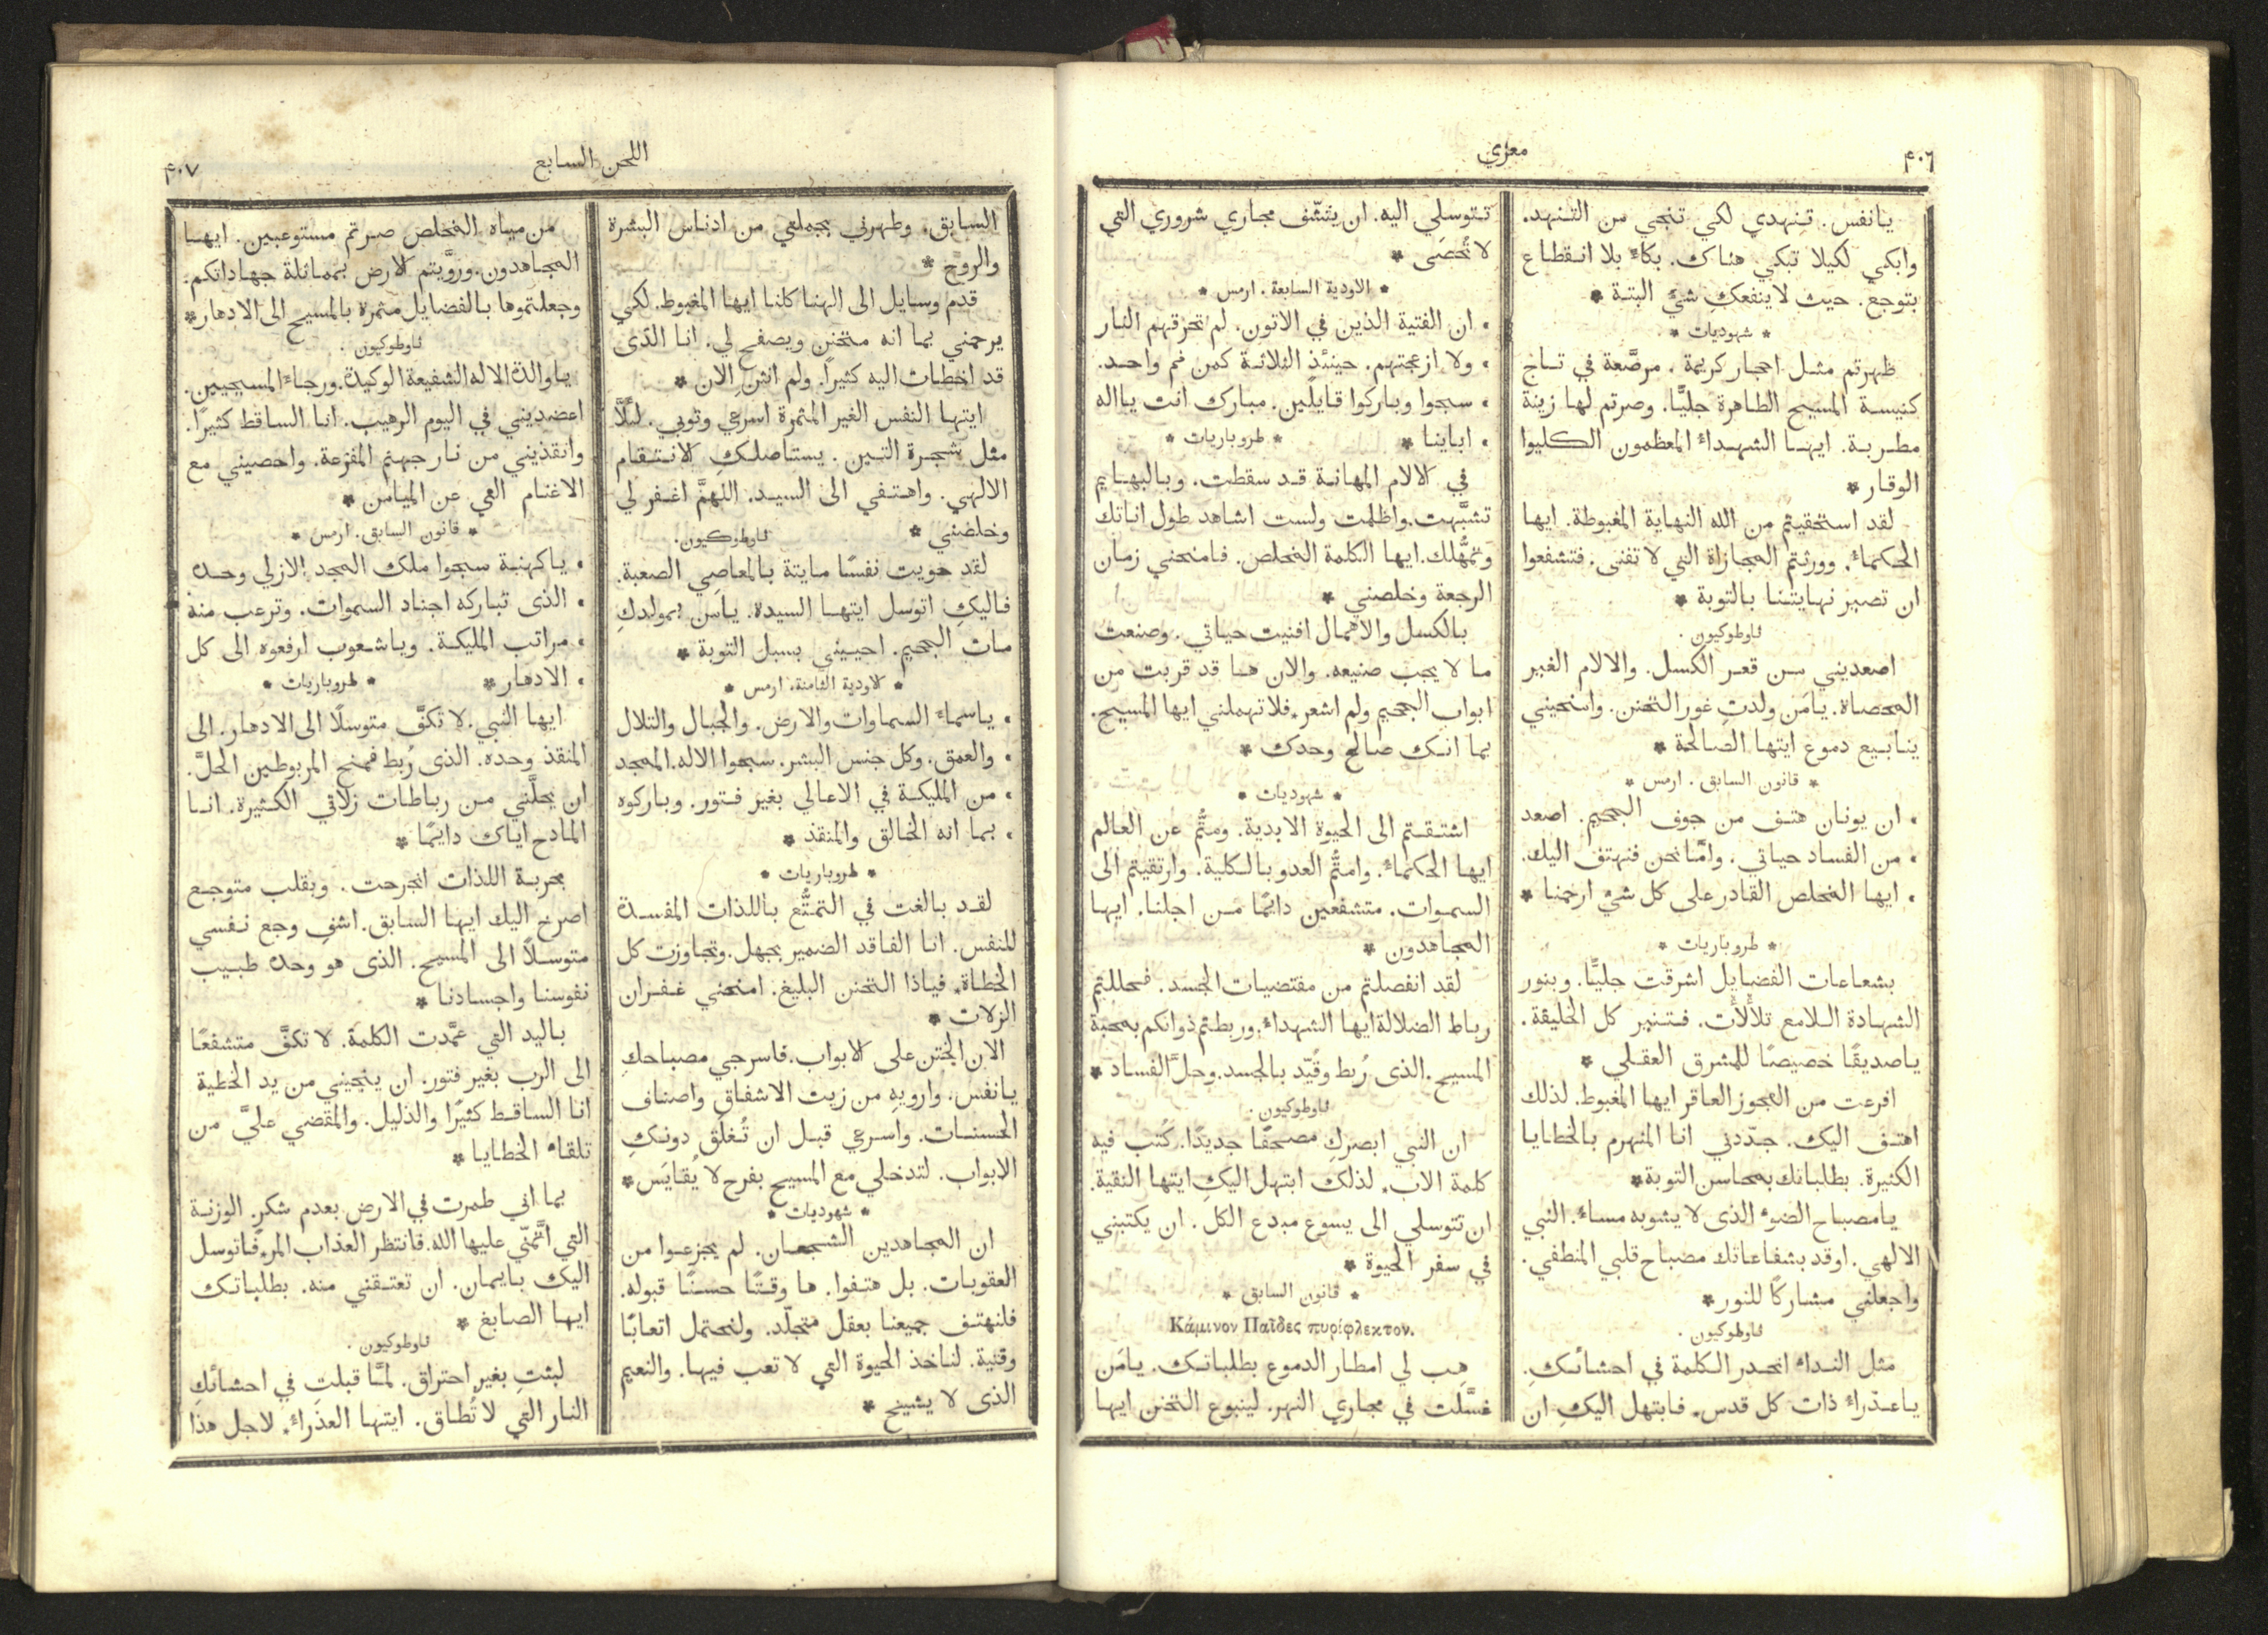 ٤٠٦
معزي
يانفس. تنهدي لكي تنجي من التنهد.
وابكي لكيلا تبكي هناك. بكاءً بلا انقطاع
بتوجع. حيث لا ينفعكِ شيء البتة *
* شهوديات *
ظهرتم مثل احجار كريمة. مرصَّعة في تاج
كنيسة المسيح الطاهرة جليًّا. وصرتم لها زينة
مطربة. ايها الشهداءُ المعظمون الكليوا
الوقار *
لقد استحقيتم من الله النهاية المغبوطة. ايها
الحكماءُ. وورثتم المجازاة التي لا تفنى. فتشفعوا
ان تصير نهايتنا بالتوبة *
ثاوطوكيون.
اصعديني من قعر الكسل. والالام الغير
المحصاة. يامَن ولدتِ غور التحنن. وامنحيني
ينابيع دموع ايتها الصالحة *
* قانون السابق. ارمس *
• ان يونان هتف من جوف الجحيم. اصعد
• من الفساد حياتي. وامَّا نحن فنهتف اليك.
• ايها المخلص القادر على كل شيءٍ ارحمنا *
* طروباريات *
بشعاعات الفضايل اشرقت جليًّا. وبنور
الشهادة اللامع تلألأت. فتنير كل الخليقة.
ياصديقًا خصيصًا للمشرق العقلي *
افرعت من العجوز العاقر ايها المغبوط. لذلك
اهتف اليك. جدّدني انا المنهرم بالخطايا
الكثيرة. بطلباتك بمحاسن التوبة *
يامصباح الضوء الذى لا يشوبه مساءٌ. النبي
الالهي. اوقد بشفاعاتك مصباح قلبي المنطفي.
واجعلني مشاركًا للنور *
ثاوطوكيون.
مثل النداءِ انحدر الكلمة في احشائكِ.
ياعذراءُ ذات كل قدس. فابتهل اليكِ ان
تتوسلي اليه. ان ينشّف مجاري شروري التي
لا تُحصَى *
* الاودية السابعة. ارمس *
• ان الفتية الذين في الاتون. لم تحرقهم النار
• ولا ازعجتهم. حينئذٍ الثلاثة كمن فم واحد.
• سبحوا وباركوا قايلين. مبارك انت يااله
• اباينا * * طروباريات *
في الالام المهانة قد سقطت. وبالبهايم
تشبَّهت. واظلمت ولست اشاهد طول اناتك
وتمهُّلك. ايها الكلمة المخلص. فامنحني زمان
الرجعة وخلصني *
بالكسل والاهمال افنيت حياتي. وصنعت
ما لا يجب صنيعه. والان ها قد قربت من
ابواب الجحيم ولم اشعر. فلا تهملني ايها المسيح.
بما انك صالح وحدك *
* شهوديات *
اشتقتم الى الحيوة الابدية. ومتُّم عن العالم
ايها الحكماءُ. وامتُّم العدو بالكلية. وارتقيتم الى
السموات. متشفعين دايمًا من اجلنا. ايها
المجاهدون *
لقد انفصلتم من مقتضيات الجسد. فحللتم
رباط الضلالة ايها الشهداءُ. وربطتم ذواتكم بمحبة
المسيح. الذى رُبط وقُيِّد بالجسد. وحلَّ الفساد *
ثاوطوكيون.
ان النبي ابصركِ مصحفًا جديدًا. كُتب فيه
كلمة الاب. لذلك ابتهل اليكِ ايتها النقية.
ان تتوسلي الى يسوع مبدع الكل. ان يكتبني
في سفر الحيوة *
* قانون السابق *
Κάμινον Παῖδες πυρίφλεκτον.
هِب لي امطار الدموع بطلباتك. يامَن
غسَّلت في مجاري النهر. لينبوع التحنن ايها
٤٠٧
اللحن السابع
السابق. وطهرني بجملتي من ادناس البشرة
والروح *
قدم وسايل الى الهنا كلنا ايها المغبوط. لكي
يرحمني بما انه متحنن ويصفح لي. انا الذى
قد اخطات اليه كثيرًا. ولم انثنِ الان *
ايتها النفس الغير المثمرة اسرعي وتوبي. لئلَّا
مثل شجرة التين. يستاصلكِ الانتقام
الالهي. واهتفي الى السيد. اللهمَّ اغفر لي
وخلصني * ثاوطوكيون.
لقد حويت نفسًا مايتة بالمعاصي الصعبة.
فاليكِ اتوسل ايتها السيدة. يامَن بمولدكِ
مات الجحيم. احييني بسبل التوبة *
* الاودية الثامنة. ارمس *
• ياسماءَ السماوات والارض. والجبال والتلال
• والعمق. وكل جنس البشر. سبحوا الاله. الممجد
• من المليكة في الاعالي بغير فتور. وباركوه
• بما انه الخالق والمنقذ *
* طروباريات *
لقد بالغت في التمتُّع باللذات المفسدة
للنفس. انا الفاقد الضمير بجهل. وتجاوزت كل
الخطاة. فياذا التحنن البليغ. امنحني غفران
الزلات *
الان الختن على الابواب. فاسرجي مصباحكِ
يانفس. وارويهِ من زيت الاشفاق واصناف
الحسنات. واسرعي قبل ان تُغلَق دونكِ
الابواب. لتدخلي مع المسيح بفرح لا يُقايَس *
* شهوديات *
ان المجاهدين الشجعان. لم يجزعوا من
العقوبات. بل هتفوا. ها وقتًا حسنًا قبوله.
فلنهتف جميعنا بعقل متجلّد. ولنحتمل اتعابًا
وقتية. لناخذ الحيوة التي لا تعب فيها. والنعيم
الذى لا يشيخ *
من مياه المخلص صرتم مستوعبين. ايها
المجاهدون. وروَّيتم الارض بمماثلة جهاداتكم.
وجعلتموها بالفضايل مثمرة بالمسيح الى الادهار *
ثاوطوكيون.
ياوالدة الاله الشفيعة الوكيدة. ورجاءَ المسيحيين.
اعضديني في اليوم الرهيب. انا الساقط كثيرًا.
وانقذيني من نار جهنم المفزعة. واحصيني مع
الاغنام التي عن الميامن *
* قانون السابق. ارمس *
• ياكهنة سبحوا ملك المجد الازلي وحده
• الذى تباركه اجناد السموات. وترعب منه
• مراتب المليكة. وياشعوب ارفعوه الى كل
• الادهار * * طروباريات *
ايها النبي. لا تكفَّ متوسلًا الى الادهار. الى
المنقذ وحده. الذى رُبط فمنح المربوطين الحلَّ.
ان يحلَّني من رباطات زلاتي الكثيرة. انا
المادح اياك دايمًا *
بحربة اللذات انجرحت. وبقلب متوجع
اصرخ اليك ايها السابق. اشفِ وجع نفسي
متوسلًا الى المسيح. الذى هو وحده طبيب
نفوسنا واجسادنا *
باليد التي عمَّدت الكلمة. لا تكفَّ متشفعًا
الى الرب بغير فتور. ان ينجيني من يد الخطية
انا الساقط كثيرًا والذليل. والمقضي عليَّ من
تلقاءِ الخطايا *
بما اني طمرت في الارض بعدم شكرٍ. الوزنة
التي ائتمنّي عليها الله. فانتظر العذاب المر. فاتوسل
اليك بايمان. ان تعتقني منه. بطلباتك
ايها الصابغ *
ثاوطوكيون.
لبثتِ بغير احتراق. لمَّا قبلتِ في احشائكِ
النار التي لا تُطاق. ايتها العذراءُ. لاجل هذا